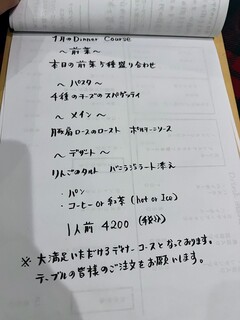 1月のDinner Course
〜前菜〜
本日の前菜5種盛り合わせ
〜パスタ〜
4種のチーズのスパゲッティ
〜メイン〜
豚肩ロースのロースト ボルドーニソース
〜デザート〜
りんごのタルト バニラジェラート添え
・パン
・コーヒー or 紅茶 (hot or Ice)
1人前 4200 (税込)
※大満足いただけるディナーコースとなっております。
テーブルの皆様のご注文をお願いします。